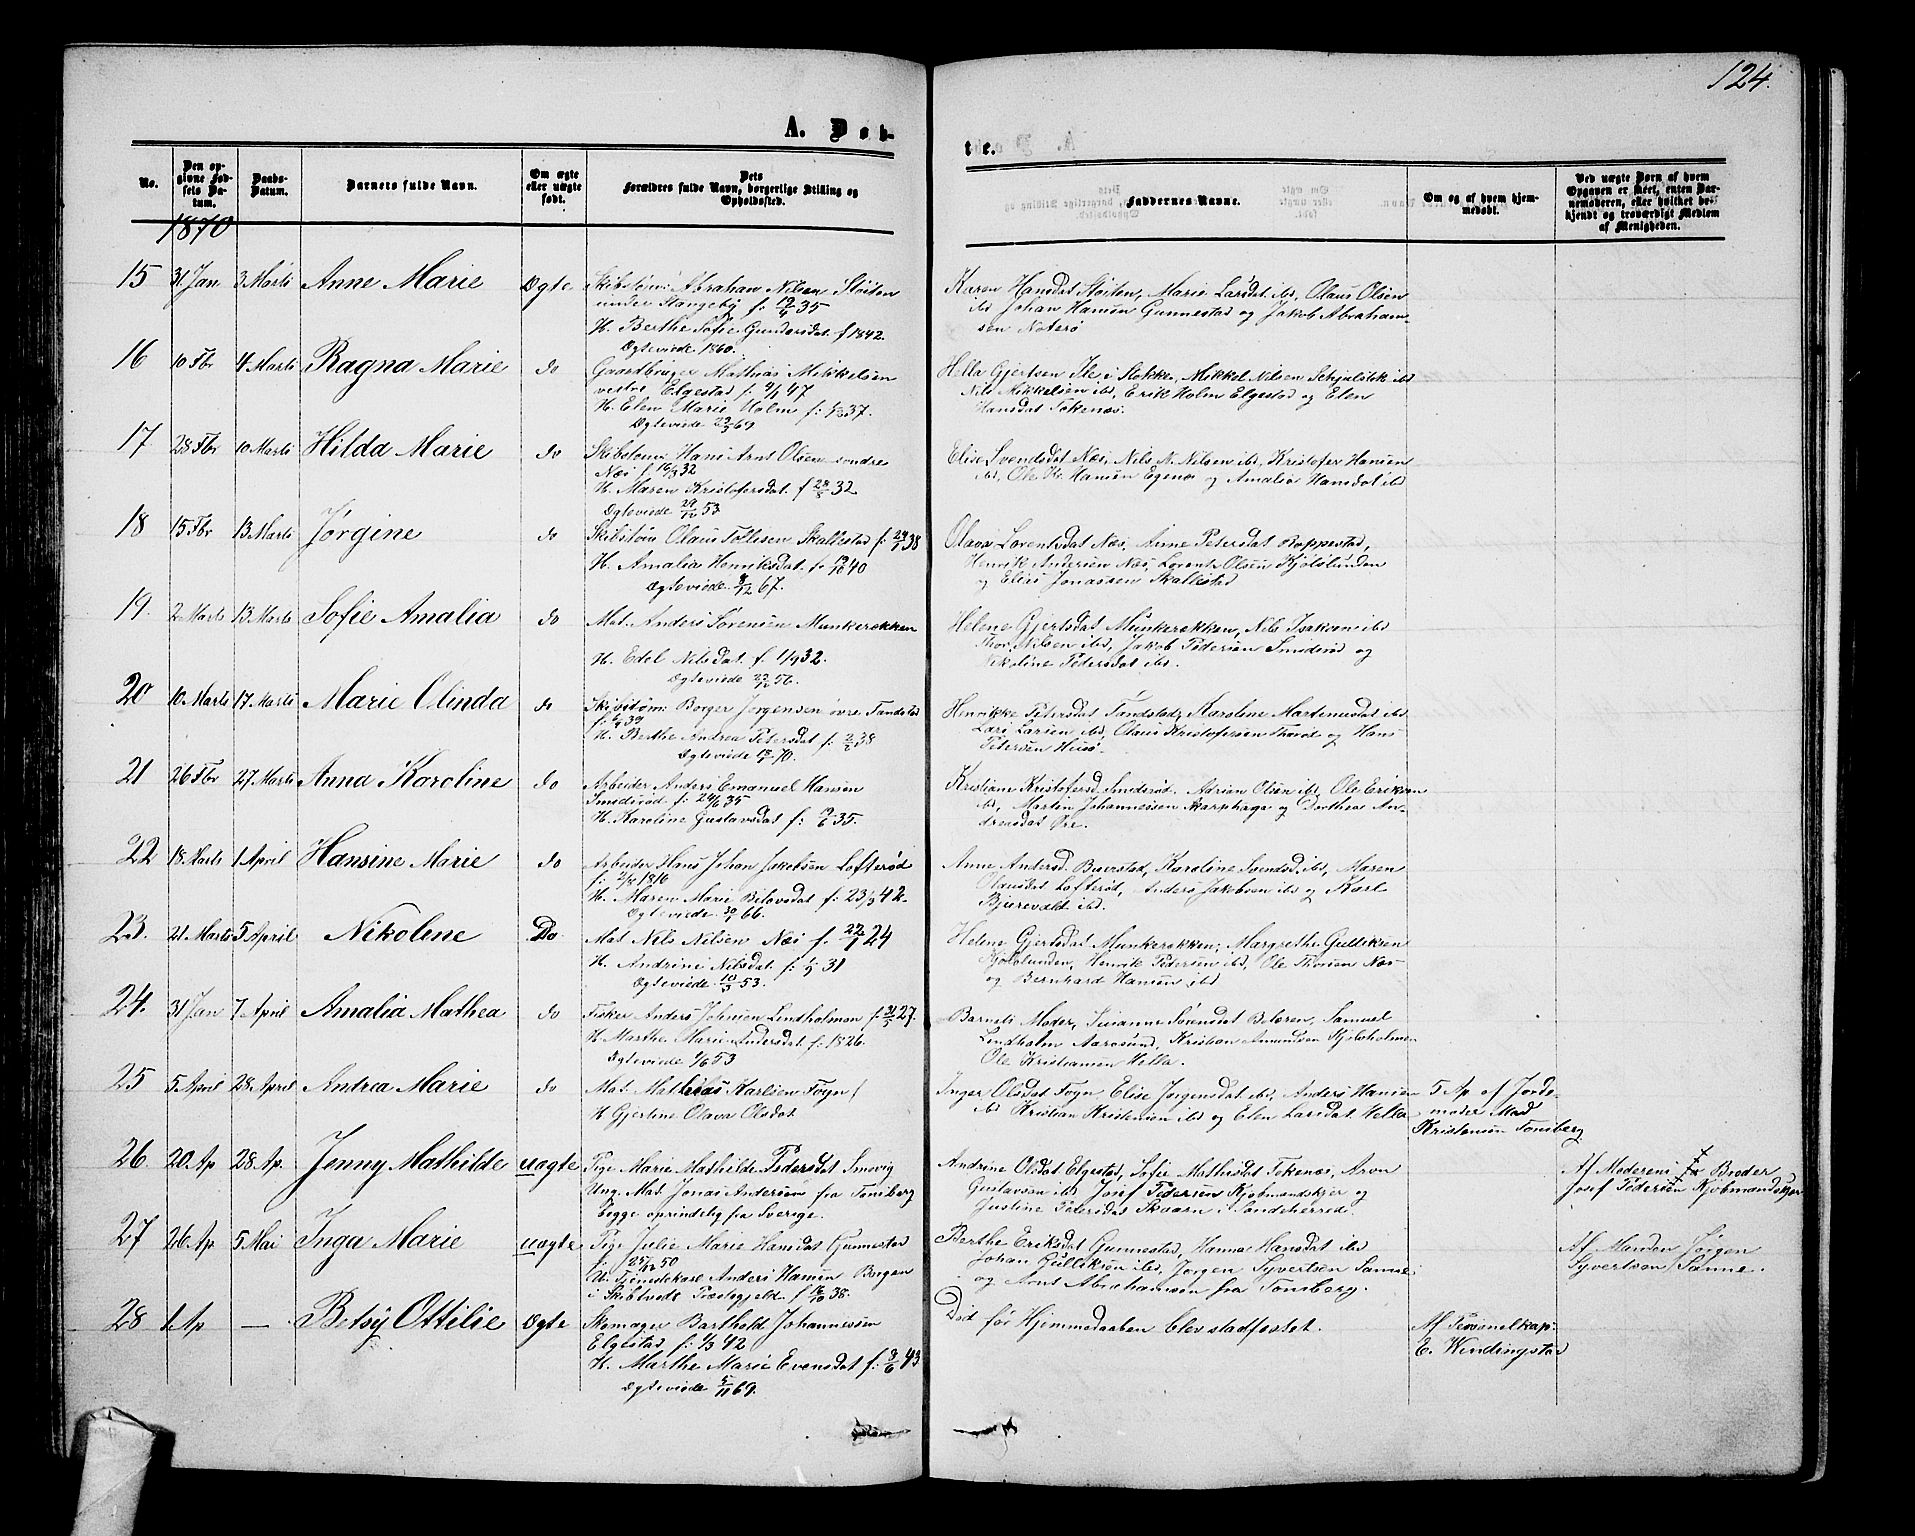 124.
A. Døb-
te.
No.
Den opgivne Fødsels Datum.
Daabs-Datum.
Barnets fulde Navn.
Om ægte eller uægte født.
Dets Forældres fulde Navn, borgerlige Stilling og Opholdssted.
Faddernes Navne.
Om og af hvem hjemmedøbt.
Ved uægte Børn af hvem Opgaven er skeet, enten Barnemoderen, eller hvilket bekjendt og troværdigt Medlem af Menigheden.
1870
15 31 Jan 3 Marts Anne Marie Ægte Skibstøm: Abraham Nilsen Støiten
under Stangeby f. 19/4 35
H. Berthe Sofie Gundersdat. f 1842.
Ægteviede 1860.
Karen Hansdat Støiten, Marie Larsdat ibd, Olaus Olsen
ibd Johan Hansen Gunnestad og Jakob Abraham-
sen Noterø
16 10 Fbr 4 Marts Ragna Marie do Gaardbruger Mathias Mikkelsen
vestre Elgestad f. 9/1 47
H. Elen Marie Holm f: 37.
Ægteviede 69
Helle Gjertsen Ile i Stokke, Mikkel Nilsen ibd
Nils Mikkelsen ibd, Erik Holm Elgestad og Elen
Hansdat Tokenæs.
17 28 Fbr 10 Marts Hilda Marie do Skibstøm Hans Arnt Olsen søndre
Næs f 16/3 32
H. Maren Kristofersdat. f 32
Ægteviede 29/10 53
Elise Svendsdat Næs, Nils N. Nilsen ibd, Kristofer Hansen
ibd, Ole Kr. Hansen Egenes og Amalia Hansdat ibd
18 15 Fbr 13 Marts Jørgine do Skibstøm Olaus Tollisen Skallestad f: 24/1 38
H. Amalia Henriksdat. f. 40
Ægteviede 67.
Olava Lorentsdat Næs, Anne Petersdat Roppestad,
Henrik Andersen Næs, Lorents Olsen Kjølslunden
og Elias Jonassen Skallestad
19. 2 Marts 13 Marts Sofie Amalia do Mat. Anders Sørensen Munkerekken
H. Edel Nilsdat. f. 1/9 32.
Ægteviede 56.
Helene Gjertsdat Munkerekken, Nils Isaksen ibd
Thor Nilsen ibd, Jakob Pedersen Smidsrød og
Nikoline Pedersdat ibd.
20 10 Marts 17 Marts Marie Olinda do Skibstøm: Borger Jørgensen øvre Tandstad
f: 39
H. Berthe Andrea Petersdat f: 2/6 38
Ægteviede 70.
Henrikke Petersdat Tandstad, Karoline Martinusdat ibd
Lars Larsen ibd, Olaus Kristofersen og Hans
Petersen Husø
21 26 Fbr 27 Marts Anna Karoline do Arbeider Anders Emanuel Hansen
Smidsrød f: 24/6 35
H. Karoline Gustavsdat f: 35.
Kristiane Kristofersd. Smidsrød. Adrian Olsen ibd, Ole Eriksen
ibd, Martin Johannessen Skarphaga og Dorthea An-
dreasdat Øre.
22 18 Marts 1 April Hansine Marie do Arbeider Hans Johan Jakobsen Lofterød
f: 1816
H. Maren Marie f: 23/3 42
Ægteviede 66.
Anne Andersd. Buerstad, Karoline Svendsd. ibd, Maren
Olausdat Lofterød, Anders Jakobsen ibd og Karl
Bjerevald ibd.
23. 21 Marts 5 April Nikoline Do Mat Nils Nilsen Næs f. 22/1 24
H. Andrine Nilsdat. f: 31
Ægteviede 10/3 53.
Helene Gjertsdat Munkerekken, Margrethe Gulliksen
Kjølslunden, Henrik Pedersen ibd, Ole Thorsen Næs
og Bernhard Hansen ibd
24. 31 Jan 7 April Amalia Mathea do Fisker Anders Johnsen Lindholmen f: 31/5 27.
H. Marthe Marie Andersdat f: 1826.
Ægteviede 1/6 53
Barnets Moder, Susanne Sørensdat Beleren, Samuel
Lindholm Aarøsund, Kristian Amundsen Kjøleholmen
Ole Kristiansen Vella.
25 5 April 28 April Andrea Marie do Mat. Mathias Karlsen Fogn
H Gjertine Olava Olsdat
Inger Olsdat Fogn Elise Jørgensdat ibd, Anders Hansen
ibd Kristian Kristensen ibd og Elen Larsdat Vella
5 Ap af Jorde-
moder Mad
Kristensen Tønsberg
26 20 Ap 28 Ap. Jenny Mathilde uægte Pige Marie Mathilde Pedersdat Smevig
Ung. Mat. Jonas Andersen fra Tønsberg
begge oprindelig fra Sverige.
Andrine Olsdat Elgestad, Sofie Mathisdat Tokenæs, Aron
Gustavsen ibd Josef Pedersen Kjøbmandskjær og
Justine Petersdat Skaarn i Sandeherred.
Af Moderens Broder
Josef Pedersen Kjøbmandskjær
27 26 Ap 5 Mai Inga Marie uægte Pige Julie Marie Hansdat Gunnestad
f: 25/12 50
U. Tømmerkarl Anders Hansen Borgen
i Skibtvedt Præstegjeld. f 38.
Berthe Eriksdat Gunnestad, Hanna Hansdat ibd
Johan Gulliksen ibd, Jørgen Syvertsen Sanne
og Arnt Abrahamsen fra Tønsberg.
Af Manden Jørgen
Syvertsen Sanne.
28 1 Ap — Betsy Ottilie Ægte Skomager Barthold Johannesen
Elgestad f: 1/3 42
H. Marthe Marie Evensdat f: 8/6 43
Ægteviede 5/11 69.
Død før Hjemmedaaben blev stadfæstet.
Af Personelkap:
E. Wendingstad